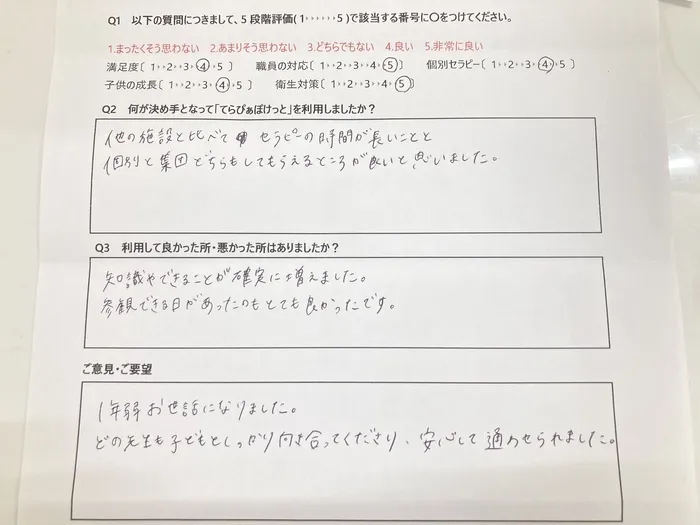 Q1 以下の質問につきまして、5段階評価(1・・・・・・5)で該当する番号に○をつけてください。
1.まったくそう思わない 2.あまりそう思わない 3.どちらでもない 4.良い 5.非常に良い
満足度〔 1・・2・・3・④・5 〕 職員の対応〔 1・・2・・3・・4・⑤ 〕 個別セラピー〔 1・・2・・3・④・5 〕
子供の成長〔 1・・2・・3・④・5 〕 衛生対策〔 1・・2・・3・・4・⑤ 〕
Q2 何が決め手となって「てらぴぁぽけっと」を利用しましたか？
他の施設と比べて セラピーの時間が長いことと
個別と集団どちらもしてもらえるところが良いと思いました。
Q3 利用して良かった所・悪かった所はありましたか？
知識やできることが確実に増えました。
参観できる日があったのもとても良かったです。
ご意見・ご要望
1年弱お世話になりました。
どの先生も子どもとしっかり向き合ってくださり、安心して通わせられました。